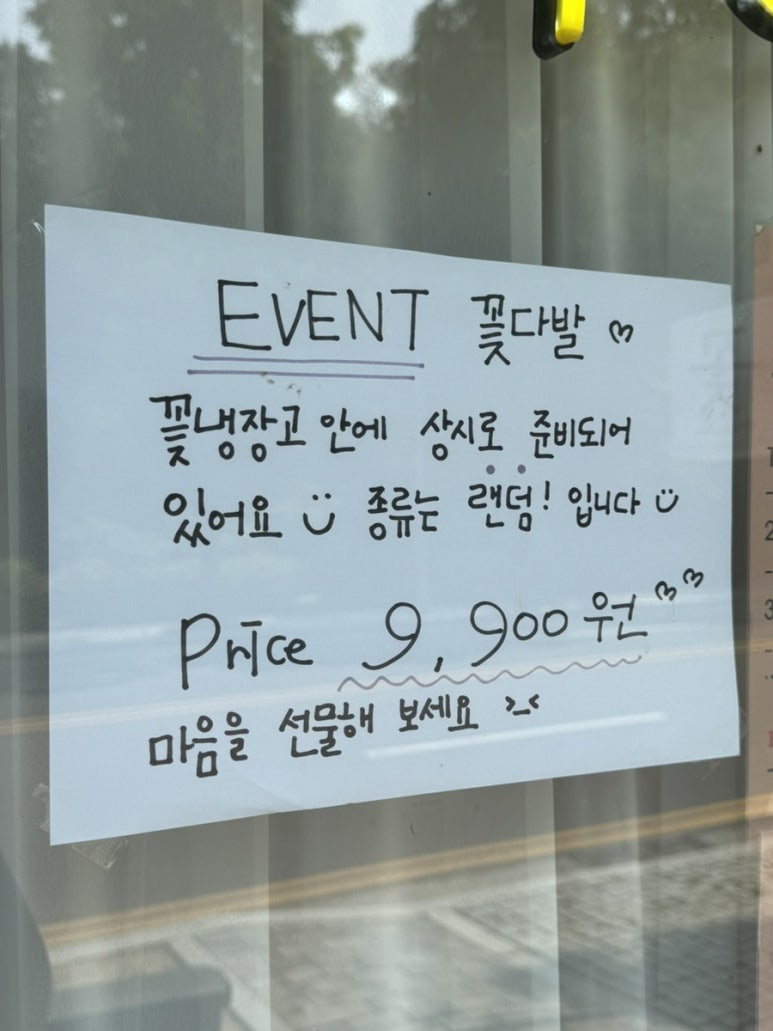 EVENT 꽃다발 ♡
꽃냉장고 안에 상시로 준비되어
있어요 :) 종류는 랜덤! 입니다 :)
Price 9,900원 ♡♡
마음을 선물해 보세요 >_<